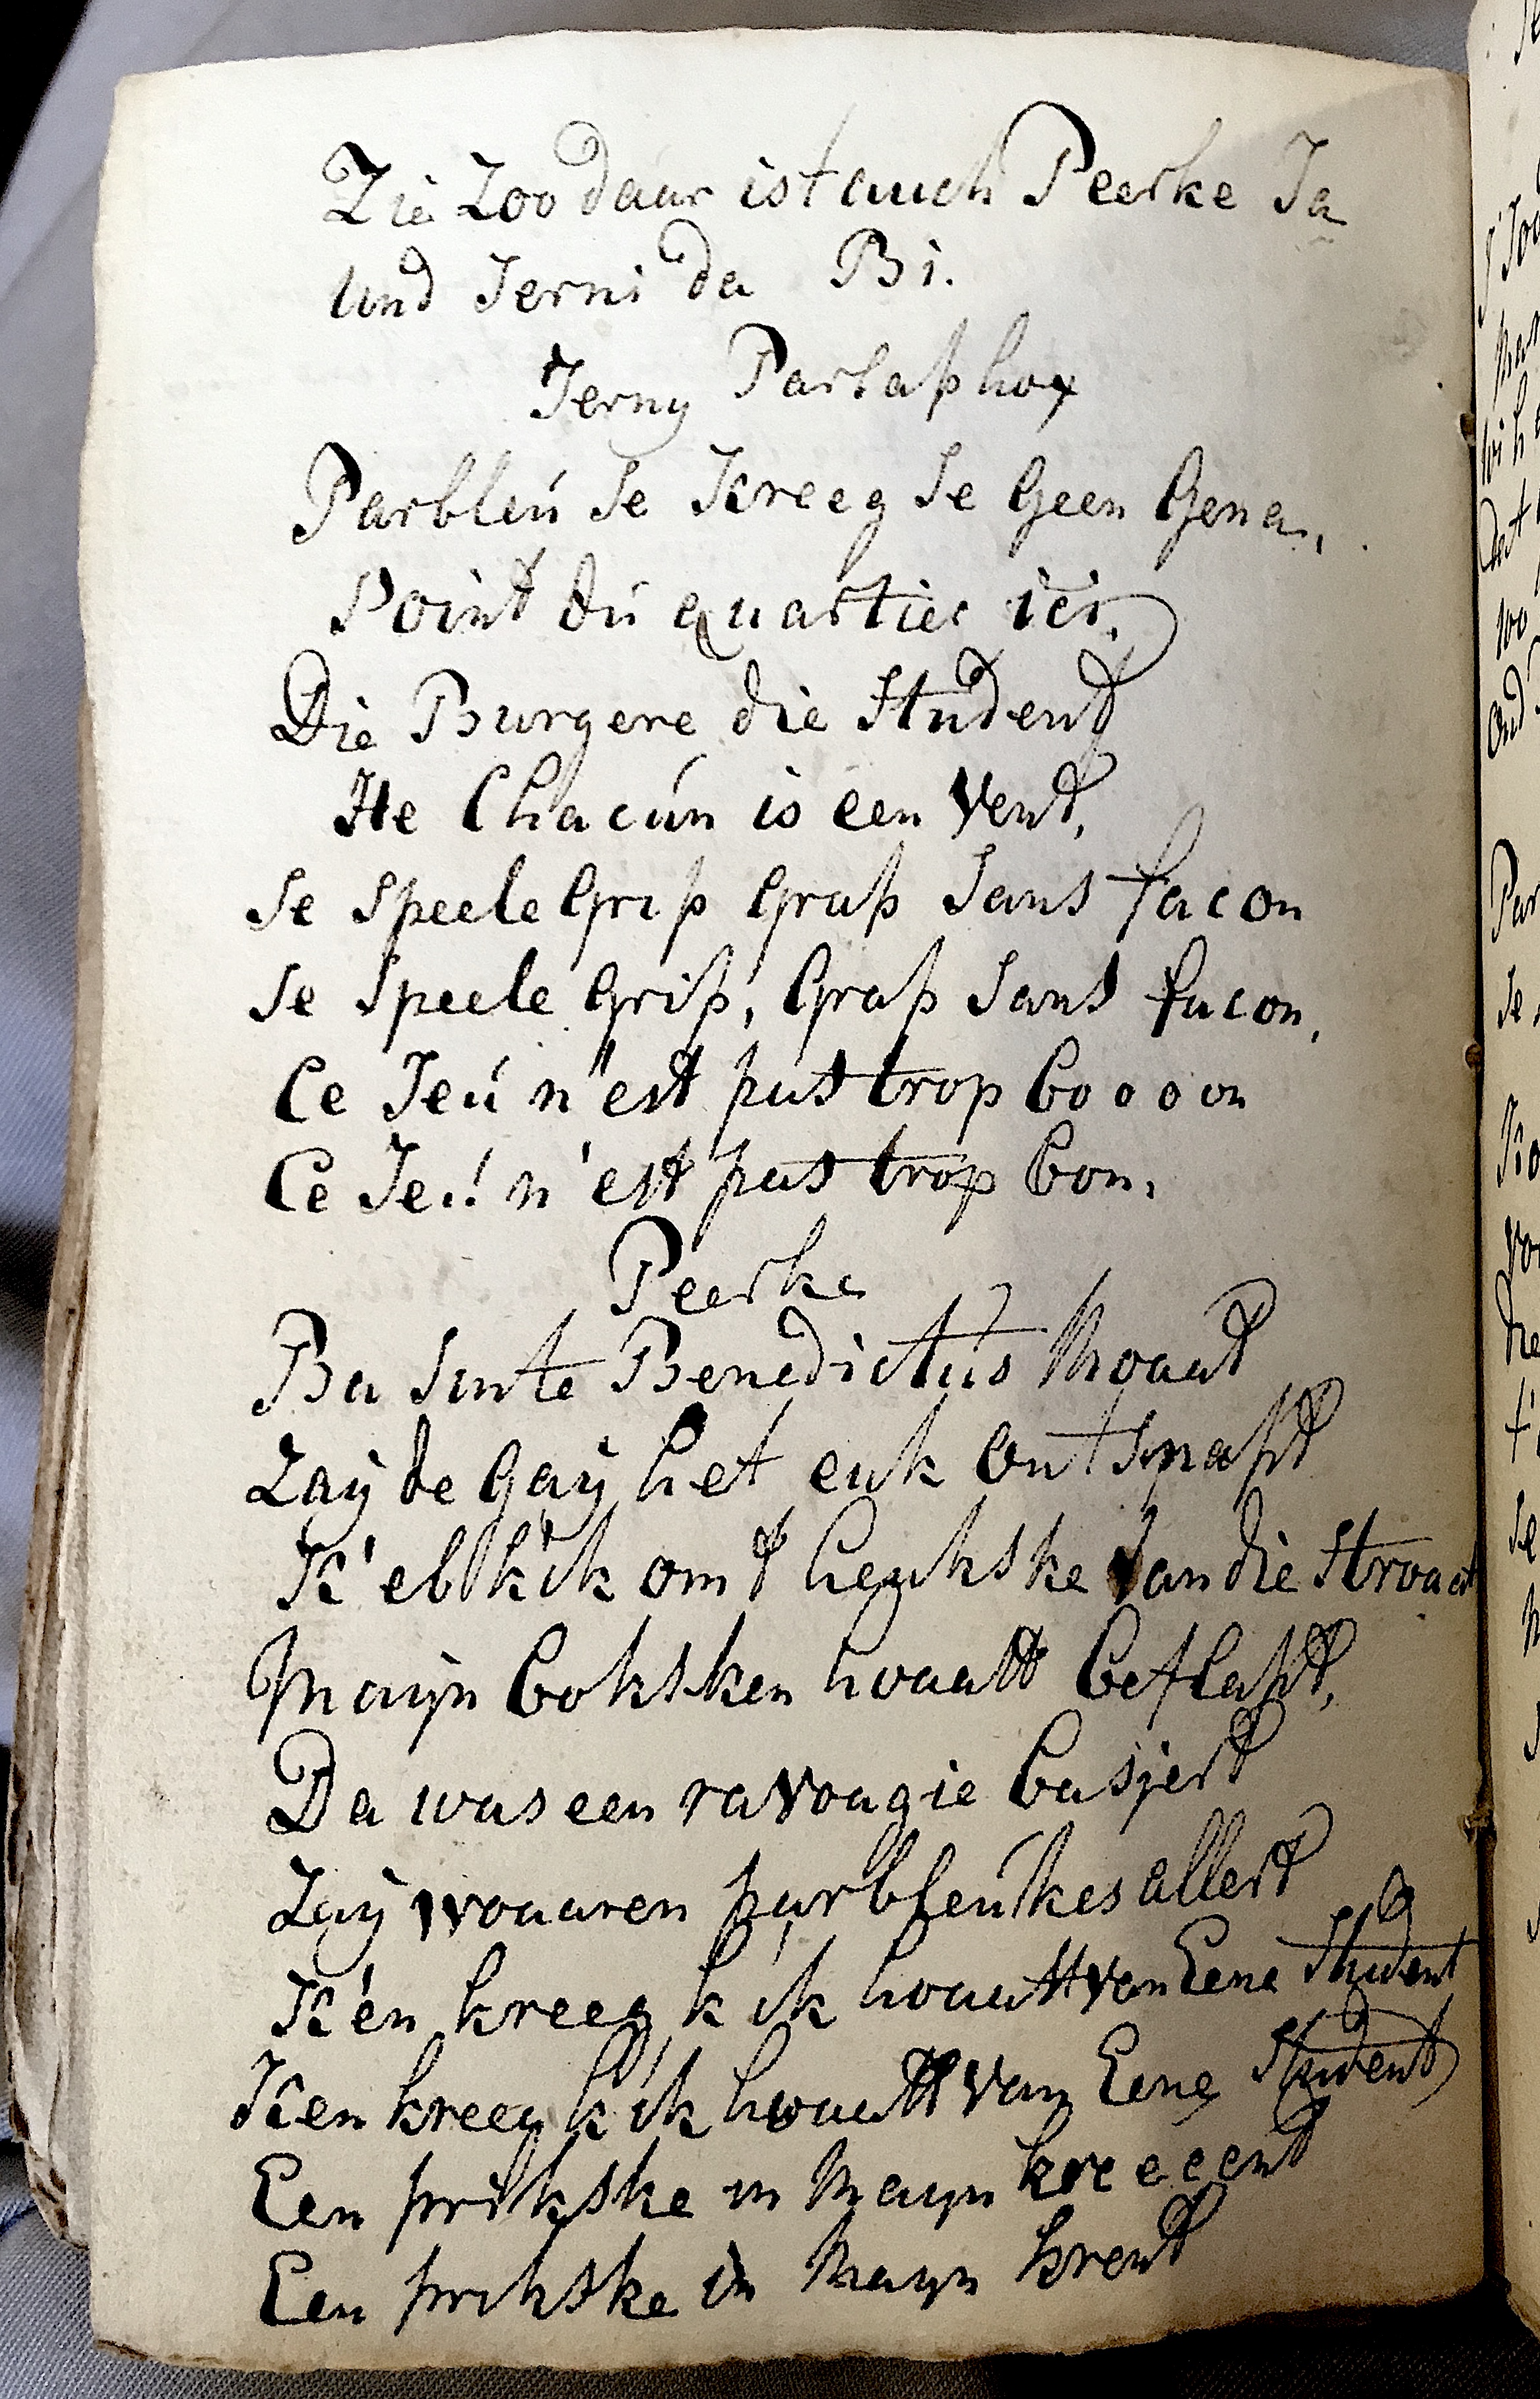 Zie Zoo daar ist auch Peerke Ja
Und Jerni da Bi.
Jerny Parlaphox
Parbleú Je Kreeg Je Geen Gena,
Point dú quartier ici,
Die Burgere die Student
He Chacún is een Vent,
Je Speele Grip Grap Sans facon
Je Speele Grip, Grap Sans facon,
Ce Jeú n'est pas trop booooon
Ce Jeú n'est pas trop bon,
Peerke
Ba Sinte Benedictus Moaat
Zaÿ de Gaÿ het euk ontsnapt
K'eb k'ik om t heukske Van die Straaat
Maijn boksken hoaast beflapt,
Da was een ravoagie basjert
Zaÿ woaaren parbleúkes allert
K'en kreeg k ik hoaast van Eene Student
K'en kreeg k ik hoaast van Eene Student
Een prikske in Maijn kreeeent
Een prikske in Maijn krent